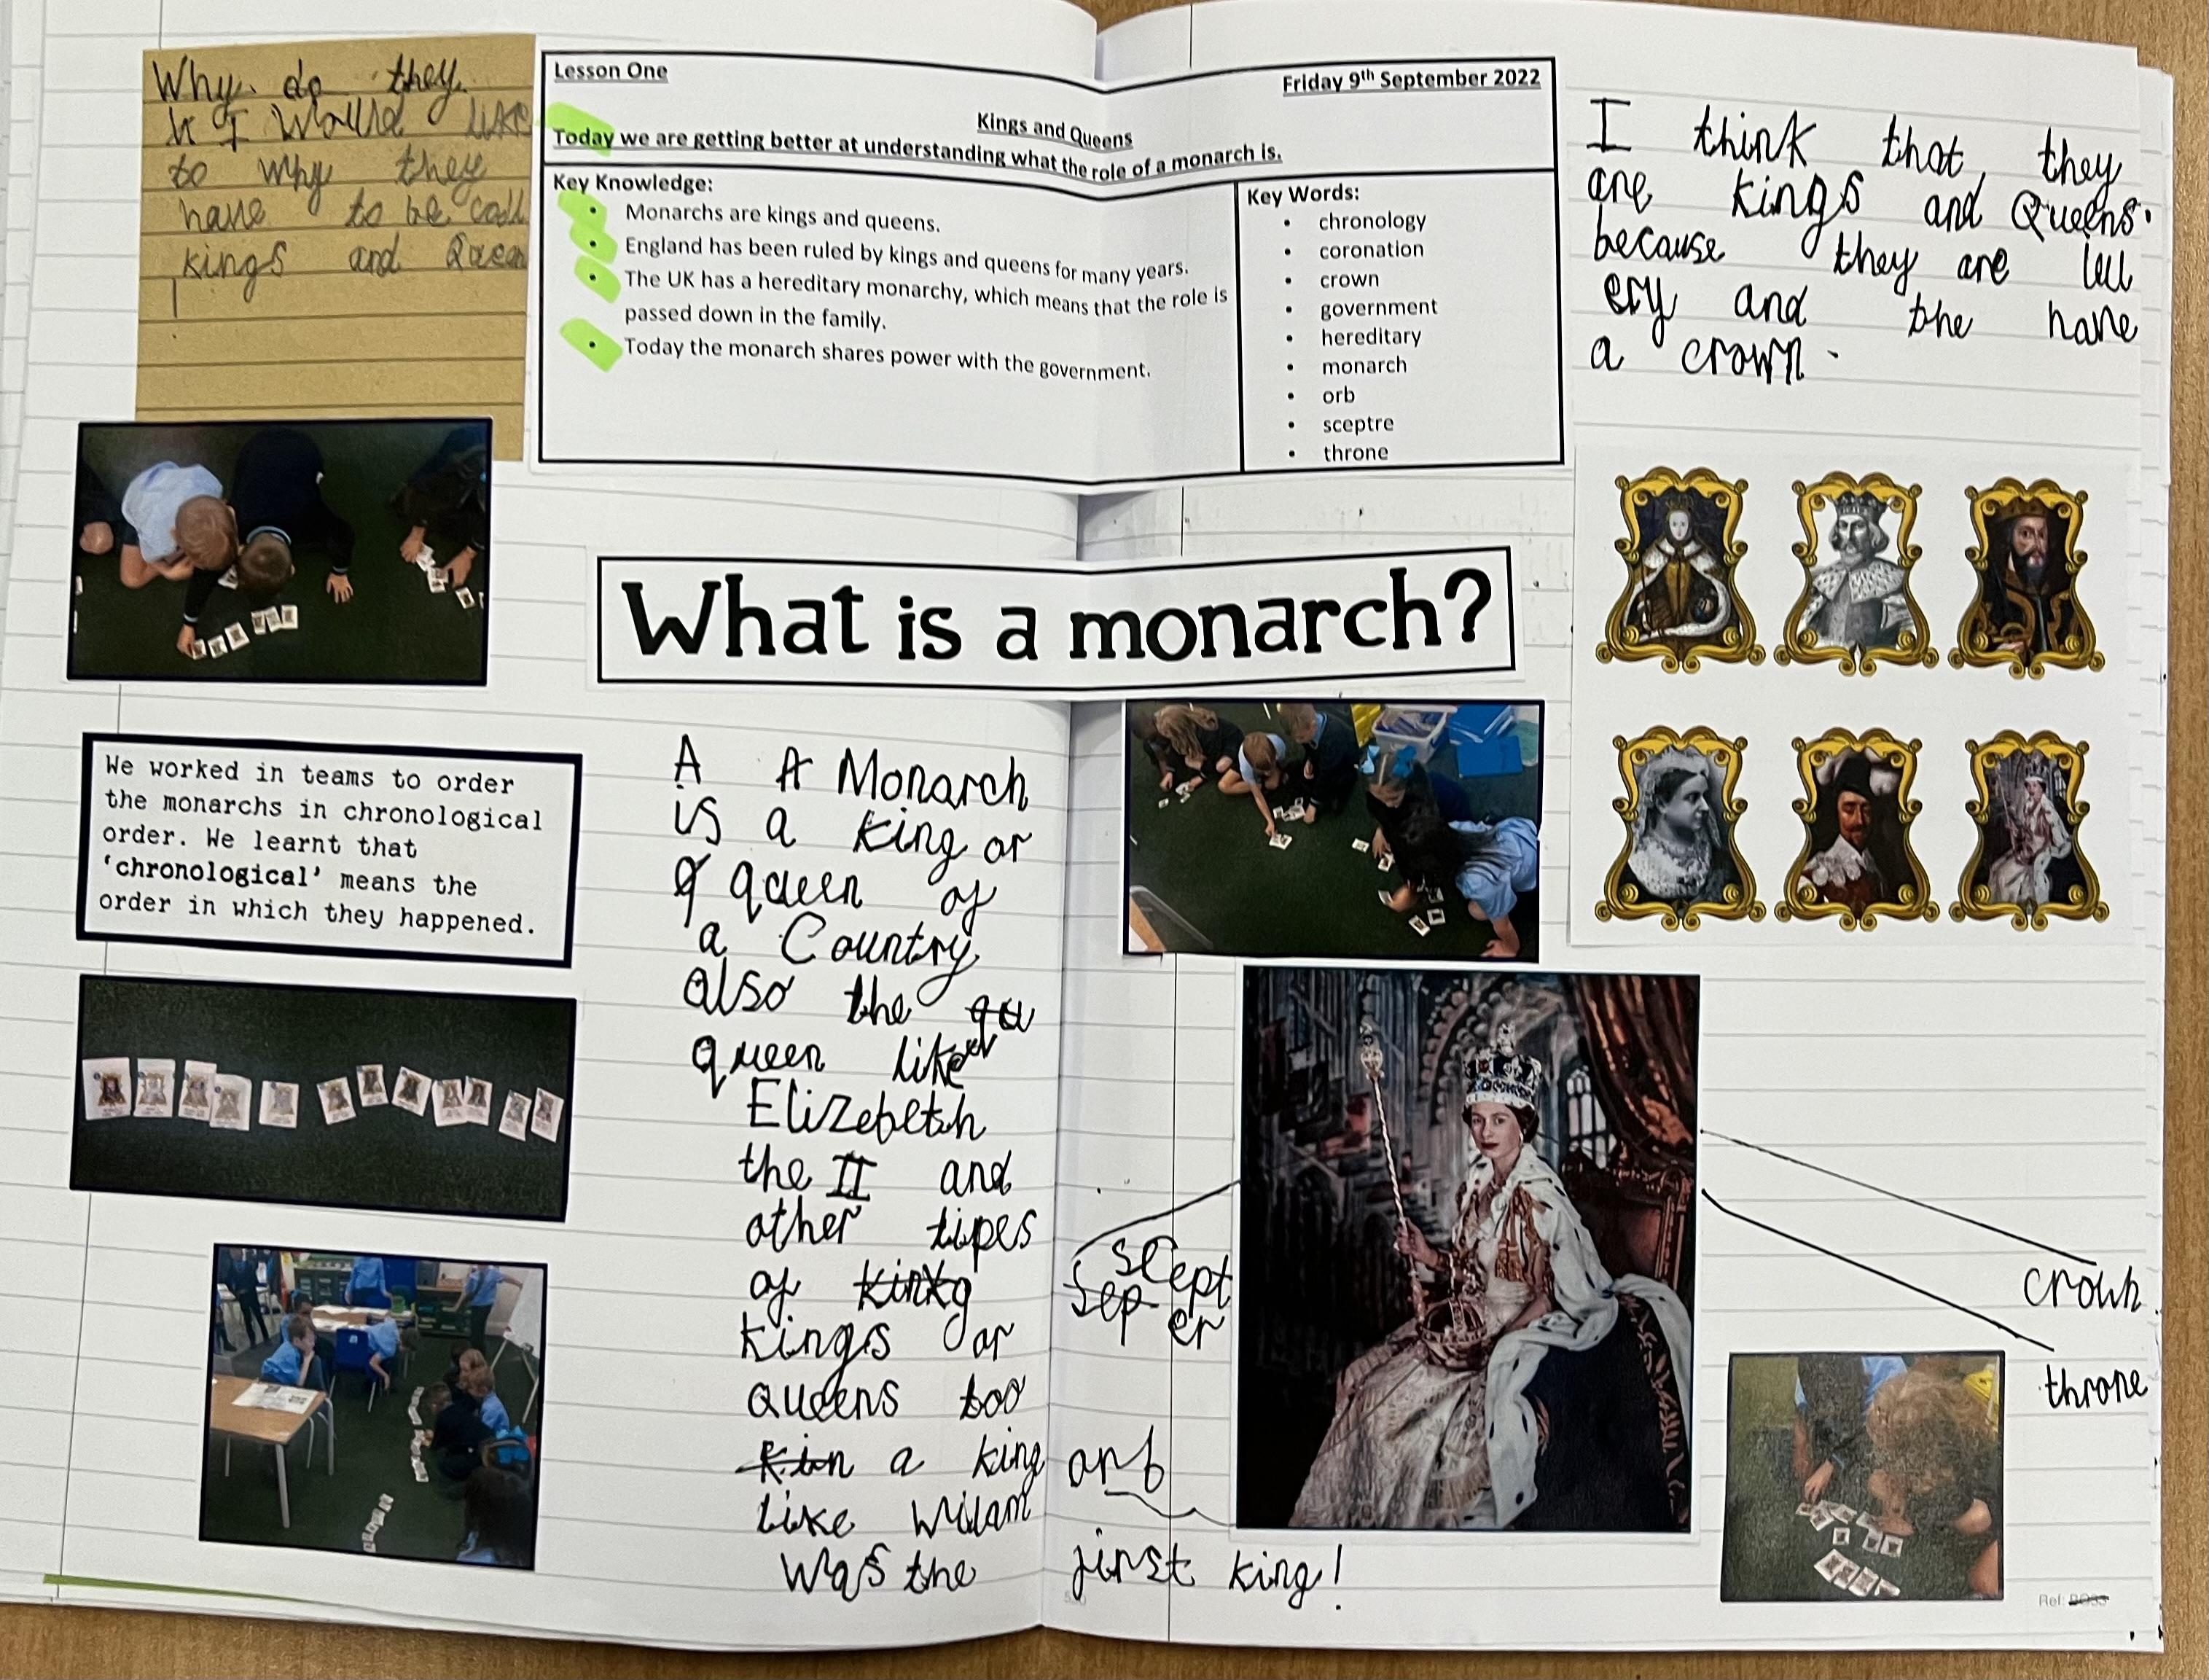 Why do they
I Would like
to why they
have to be call
kings and Queen
Lesson One
Friday 9th September 2022
Kings and Queens
Today we are getting better at understanding what the role of a monarch is.
Key Knowledge:
• Monarchs are kings and queens.
• England has been ruled by kings and queens for many years.
• The UK has a hereditary monarchy, which means that the role is
passed down in the family.
• Today the monarch shares power with the government.
Key Words:
• chronology
• coronation
• crown
• government
• hereditary
• monarch
• orb
• sceptre
• throne
I think that they
are kings and Queens.
because they are
ery and the have
a crown.
What is a monarch?
We worked in teams to order
the monarchs in chronological
order. We learnt that
‘chronological’ means the
order in which they happened.
A A Monarch
is a king or
q queen of
a Country
also the qu
queen like
Elizebeth
the II and
other tipes
of kinkg
kings or
queens too
kin a king
like Wilam
was the first king!
scept
sep er
orb
crown
throne
Ref: BO33